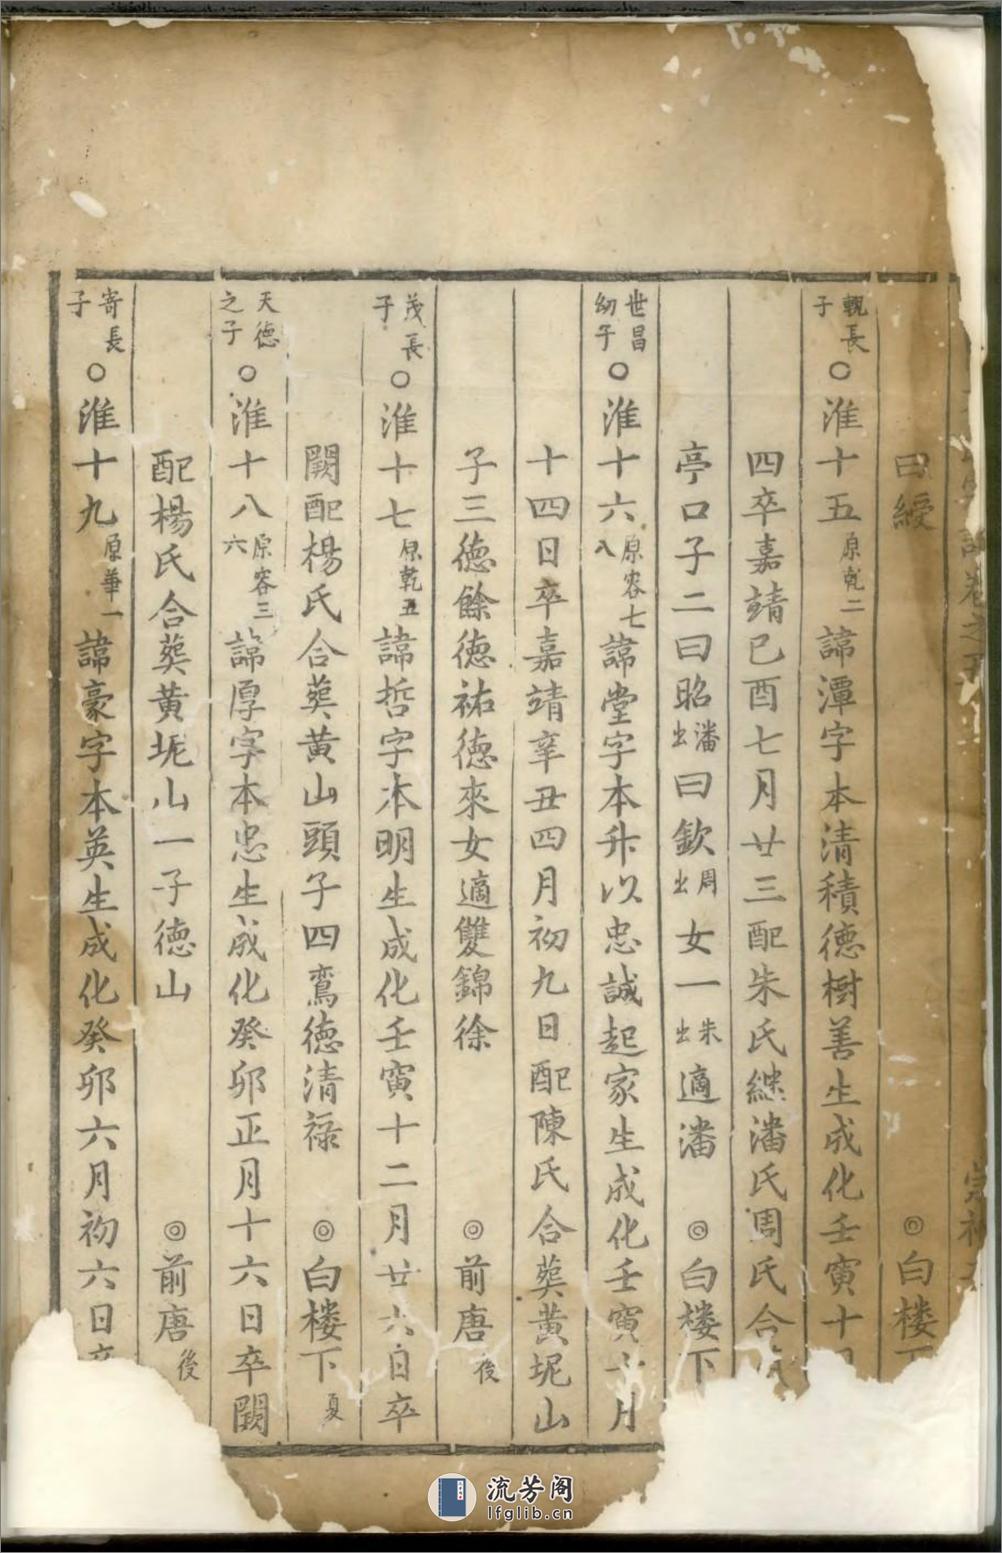 曰綬 ◎白楼下
覩長子○淮十五原乾二諱潭字本清積德樹善生成化壬寅十月
四卒嘉靖己酉七月廿三配朱氏継潘氏周氏合
亭口子二曰昭潘出曰欽周出女一朱出適潘 ◎白楼下
世昌幼子○淮十六原容七八諱堂字本升以忠誠起家生成化壬寅十月
十四日卒嘉靖辛丑四月初九日配陳氏合葬黄坭山
子三德餘德祐德來女適雙錦徐 ◎前唐後
茂長子○淮十七原乾五諱哲字本明生成化壬寅十二月廿六日卒
闕配楊氏合葬黄山頭子四鸞德清禄 ◎白楼下夏
天德之子○淮十八原容三六諱厚字本忠生成化癸卯正月十六日卒闕
配楊氏合葬黄坭山一子德山 ◎前唐後
寄長子○淮十九原華一諱豪字本英生成化癸卯六月初六日卒
流芳阁
lfglib.cn